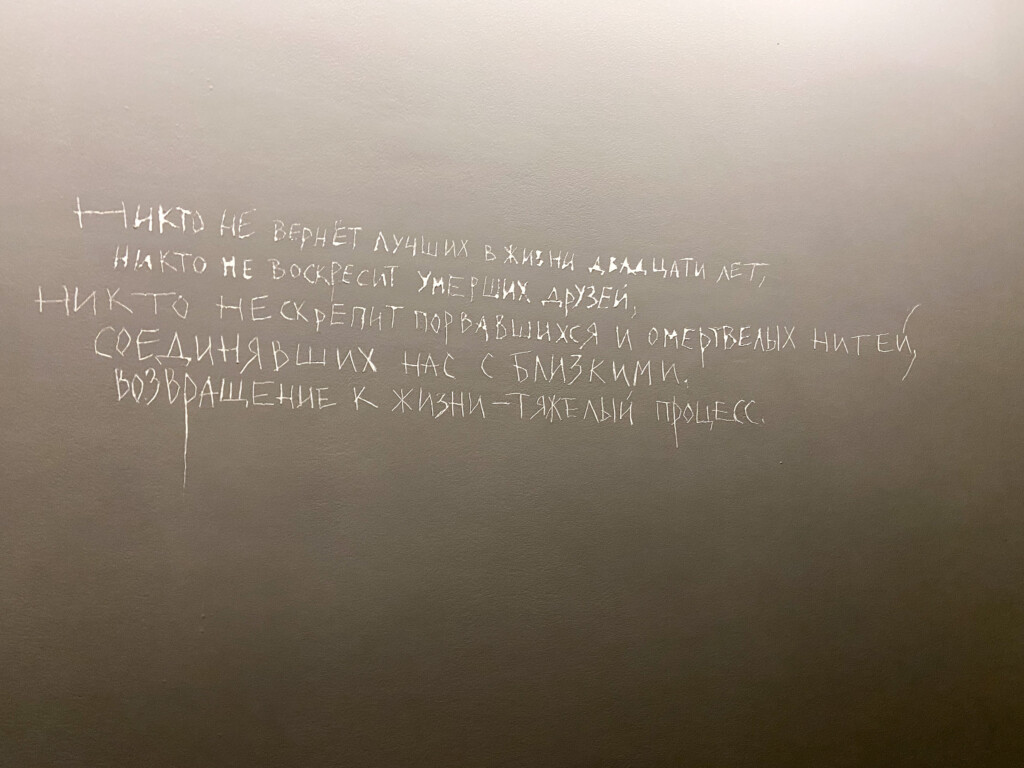 Никто не вернёт лучших в жизни двадцати лет,
никто не воскресит умерших друзей,
никто не скрепит порвавшихся и омертвелых нитей,
соединявших нас с близкими.
Возвращение к жизни – тяжелый процесс.